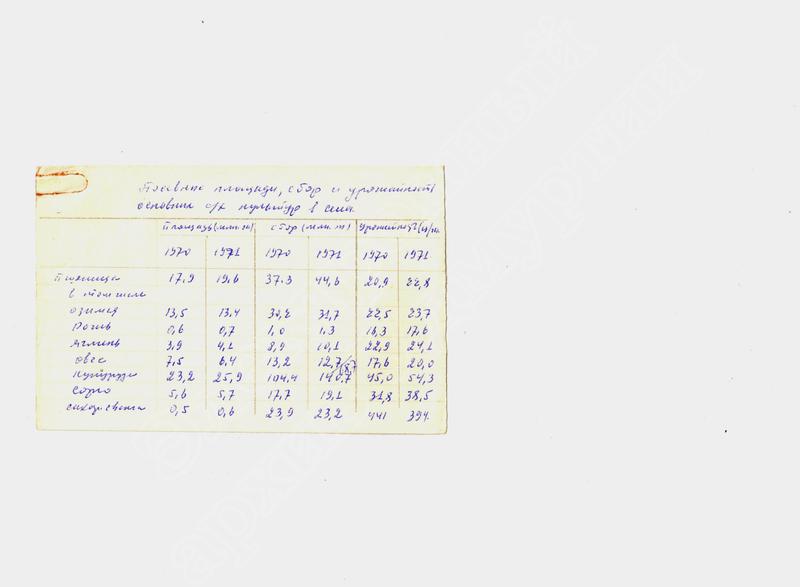 Посевные площади, сбор и урожайность
основных с/х культур в сша
площадь (млн. га) сбор (млн. т) Урожайность (ц/га
1970 1971 1970 1971 1970 1971
пшеница 17,9 19,6 37.3 44,6 20,9 22,8
в том числе
озимая 13,5 13,4 30,2 31,7 22,5 23,7
рожь 0,6 0,7 1,0 1.3 16,3 17,6
ячмень 3,9 4,1 8,9 10,1 22,9 24,1
овес 7,5 6,4 13,2 12,7 17,6 20,0
кукуруза 23,2 25,9 104,4 140,7 45,0 54,3
сорго 5,6 5,7 17,7 19,1 31,8 38,5
сахар. свекла 0,5 0,6 23,9 23,2 441 394